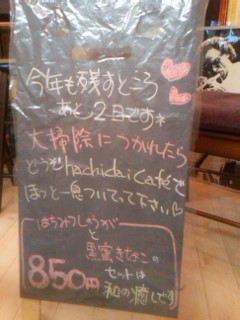 今年も残すところ
あと2日ですネ
大掃除につかれたら
どうぞhachidai caféで
ほっと一息ついてって下さい♡
はちみつしょうが
と
黒蜜きなこの
セットは
850円
和の癒しです